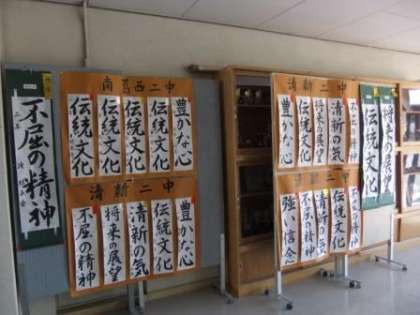 不屈の精神
南葛西二中
伝統文化
伝統文化
伝統文化
伝統文化
豊かな心
清新二中
不屈の精神
将来の展望
清新の気
伝統文化
豊かな心
清新二中
豊かな心
伝統文化
将来の展望
清新の気
不屈の精神
強い信念
不屈の精神
清新の気
伝統文化
伝統文化
将来の展望